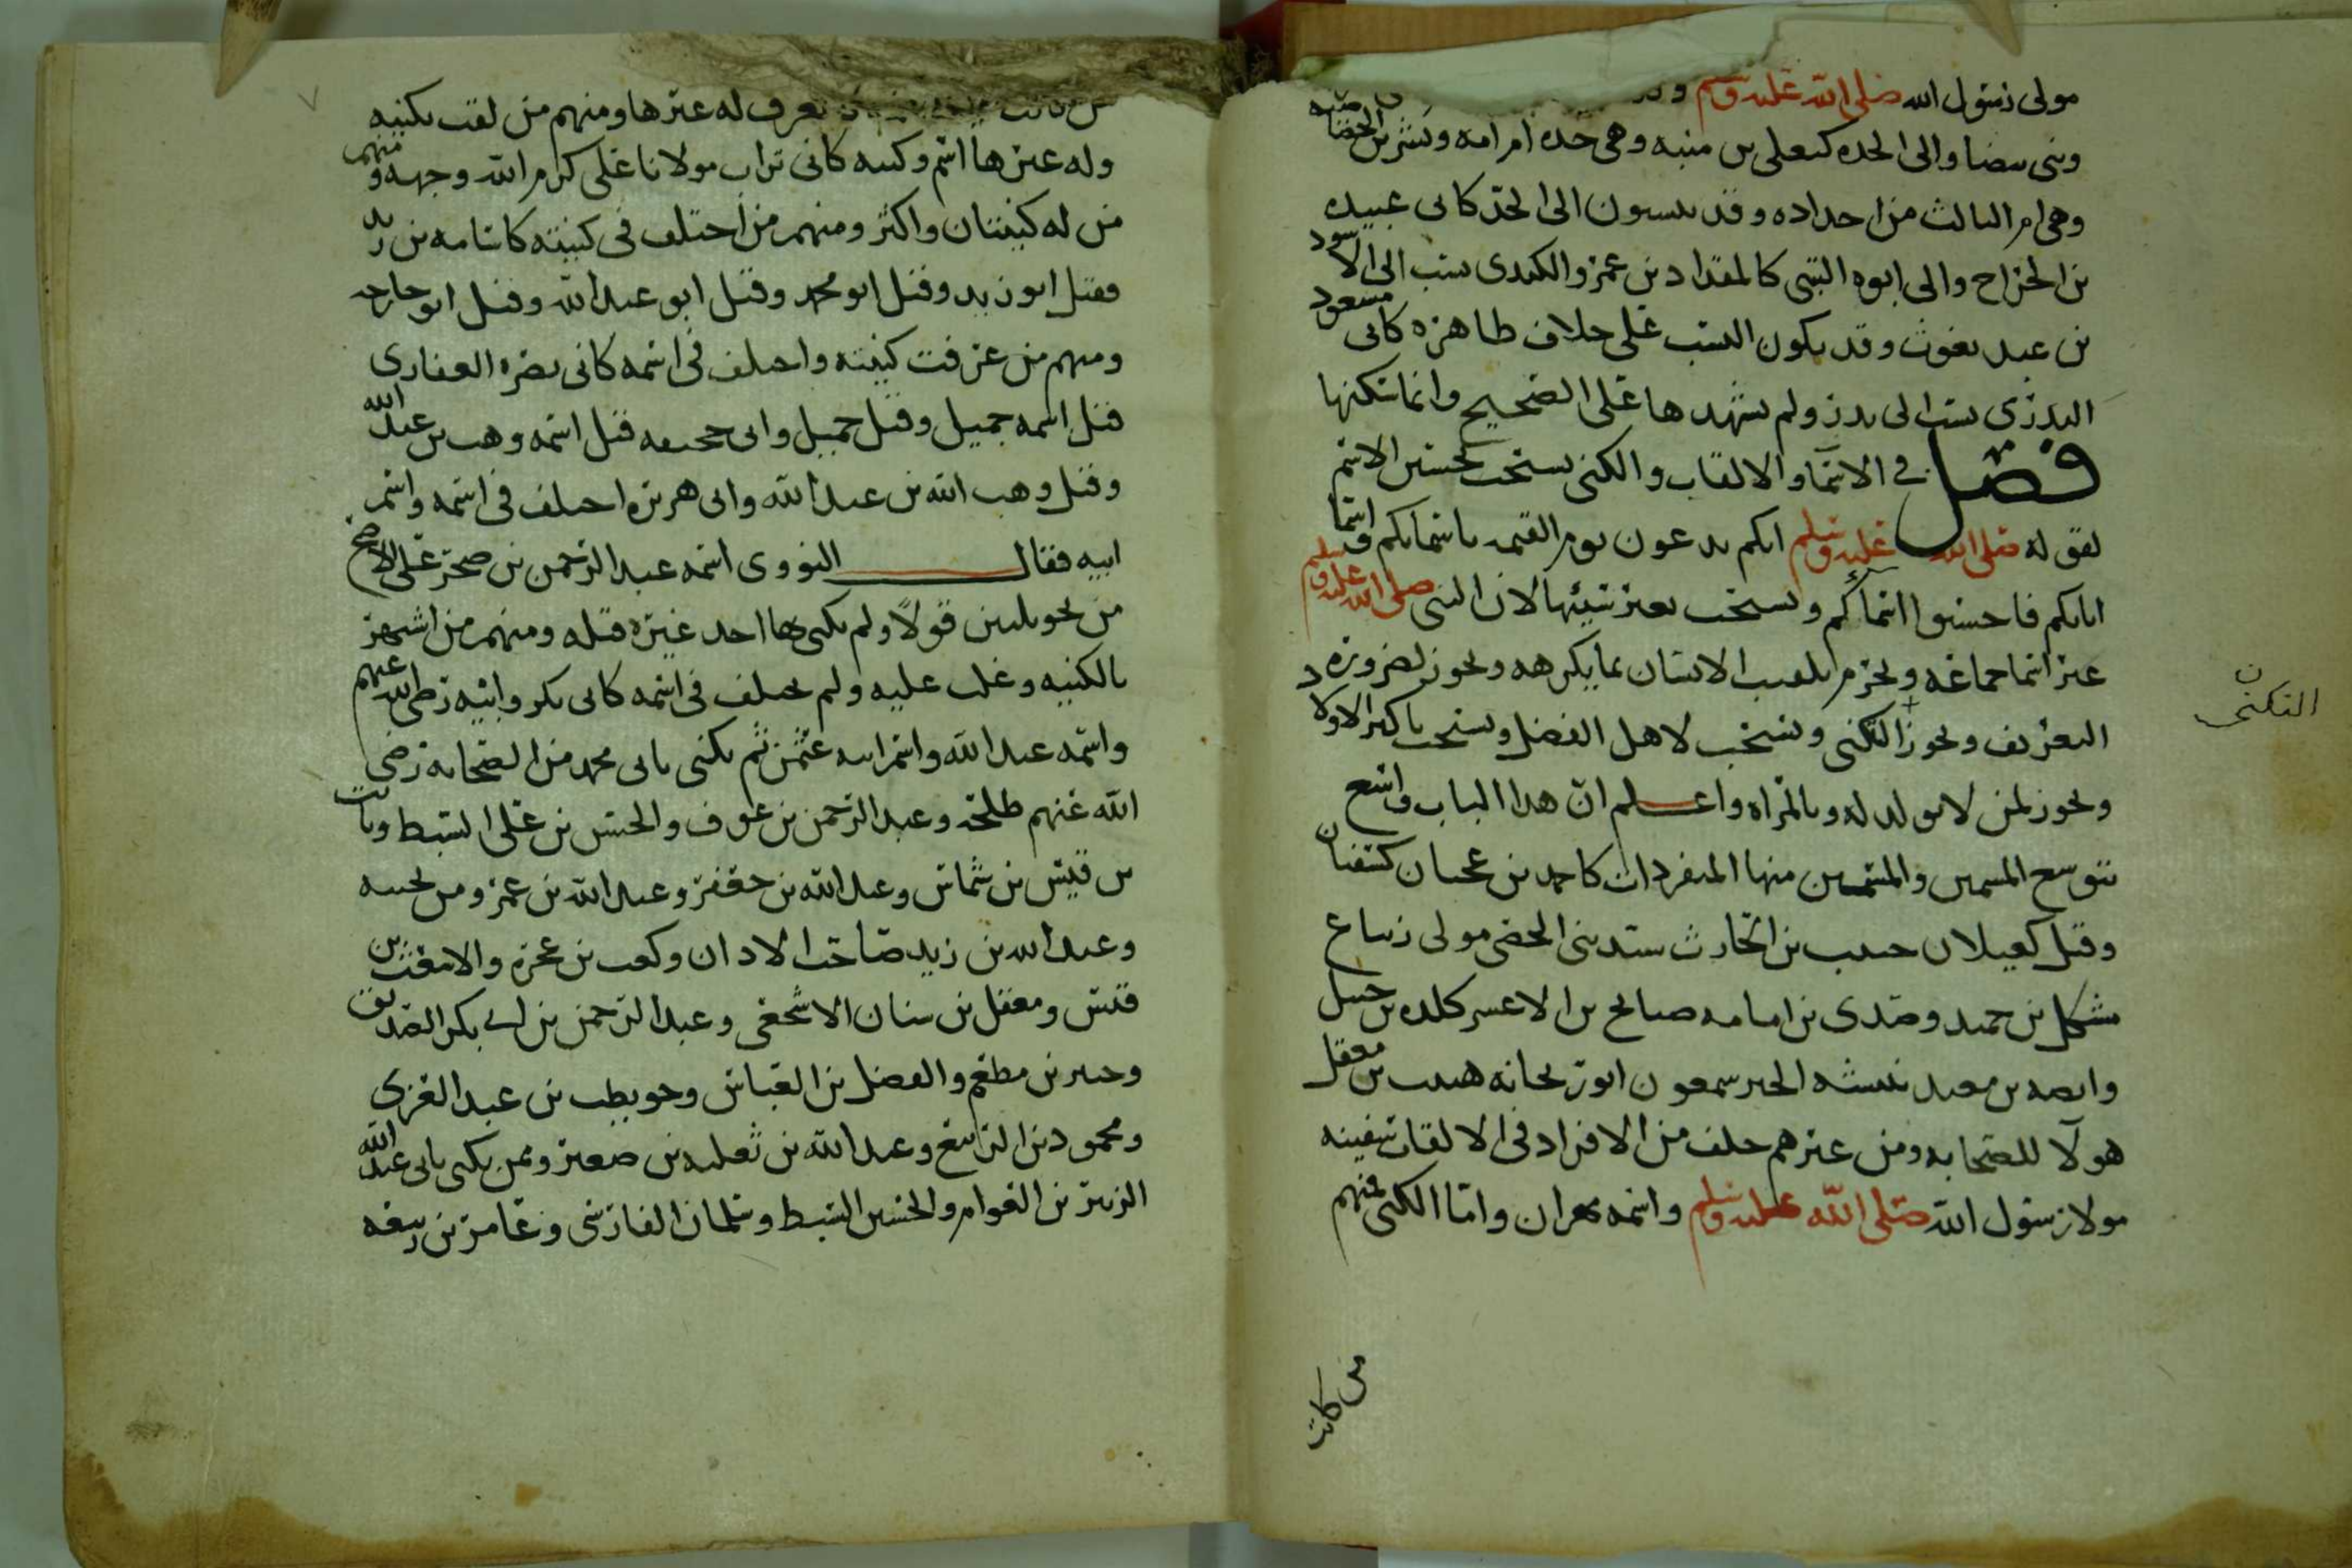 مولى رسول الله صلى الله عليه وسلم
وبنى بيضا والى الجده كيعلى بن منيه وهى جده ام امه وبشر بن الخصاصيه
وهى ام الثالث من اجداده وقد ينسبون الى الجد كابى عبيده
بن الجراح والى ابوه التبنى كالمقداد بن عمرو الكندى نسب الى الاسود
بن عبد يغوث وقد يكون النسب على خلاف ظاهره كابى مسعود
البدرى نسب الى بدر ولم يشهدها على الصحيح وانما سكنها
فصل في الاسما والالقاب والكنى يستحب تحسين الاسم
لقوله صلى الله عليه وسلم انكم تدعون يوم القيمه باسمائكم واسما
ابائكم فاحسنوا اسماكم ويستحب تغير سيئها لان النبى صلى الله عليه وسلم
غير اسما جماعه ويحرم تلقيب الانسان بما يكرهه ويجوز لضروره
التعريف ويجوز التكنى ويستحب لاهل الفضل ويستحب باكبر الاولاد
ويجوز لمن لا يولد له وبالمراه واعلم ان هذا الباب واسع
يتوسع المسمين والمتسمين منها المفردات كاحمد بن عجيان كسفيان
وقيل كعيلان حبيب بن الحارث سندر بنى الخصى مولى زنباع
شكل بن حميد وصدى بن امامه صنابح بن الاعسر كلده بن حنبل
وابصه بن معبد نبيشه الخير سمعون ابو ريحانه هبيب بن معقل
هولآ للصحابه ومن غيرهم خلف من الافراد فى الالقاب سفينه
مولا رسول الله صلى الله عليه وسلم واسمه مهران واما الكنى فمنهم
من كانت
التكنى ن
من كانت يعرف له غيرها ومنهم من لقب بكنيه
وله غيرها اسم وكنيه كابى تراب مولانا على كرم الله وجهه ومنهم
من له كنيتان واكثر ومنهم من اختلف فى كنيته كاسامه بن زيد
فقيل ابو زيد وقيل ابو محمد وقيل ابو عبد الله وقيل ابو خارجه
ومنهم من عرفت كنيته واختلف فى اسمه كابى بصره الغفارى
قيل اسمه جميل وقيل حميل وابى جحيفه قيل اسمه وهب بن عبد الله
وقيل وهب الله بن عبد الله وابى هريره اختلف فى اسمه واسم
ابيه فقال النووى اسمه عبد الرحمن بن صخر على الاصح
من نحو ثلثين قولا ولم يكنى بها احد غيره قبله ومنهم من اشهر
بالكنيه وغلب عليه ولم يختلف فى اسمه كابى بكر وابيه رضى الله عنهم
واسمه عبد الله واسم ابيه عثمن ثم يكنى بابى محمد من الصحابه رضى
الله عنهم طلحه وعبد الرحمن بن عوف والحسن بن على السبط وثابت
بن قيس بن شماس وعبد الله بن جعفر وعبد الله بن عمرو وبن بحينه
وعبد الله بن زيد صاحب الاذان وكعب بن عجره والاشعث بن
قيس ومعقل بن سنان الاشجعى وعبد الرحمن بن ابى بكر الصديق
وجبير بن مطعم والفضل بن العباس وحويطب بن عبد العزى
ومحمود بن الربيع وعبد الله بن ثعلبه بن صعير وممن يكنى بابى عبد الله
الزبير بن العوام والحسين السبط وسلمان الفارسى وعامر بن ربيعه